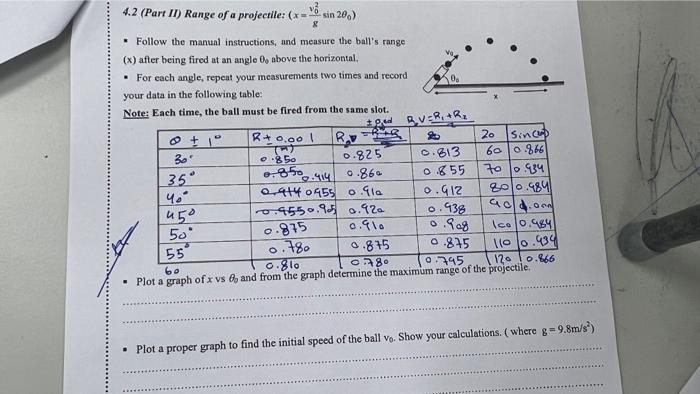 4.2 (Part II) Range of a projectile: (x = v₀²/g sin 2θ₀)
▪ Follow the manual instructions, and measure the ball's range
(x) after being fired at an angle θ₀ above the horizontal.
▪ For each angle, repeat your measurements two times and record
your data in the following table:
Note: Each time, the ball must be fired from the same slot.
v₀
θ₀
x
R,V=R₁+R₂
2
θ ± 1° R±0.001 2θ Sin(2θ)
(m)
30° 0.850 0.825 0.813 60 0.866
35° 0.850 0.914 0.860 0.855 70 0.934
40° 0.914 0.955 0.910 0.912 80 0.984
45° 0.955 0.905 0.920 0.938 90 1.000
50° 0.875 0.910 0.908 100 0.984
55° 0.780 0.875 0.875 110 0.934
60 0.810 0.780 0.795 120 0.866
▪ Plot a graph of x vs θ₀ and from the graph determine the maximum range of the projectile.
▪ Plot a proper graph to find the initial speed of the ball v₀. Show your calculations. ( where g = 9.8m/s²)